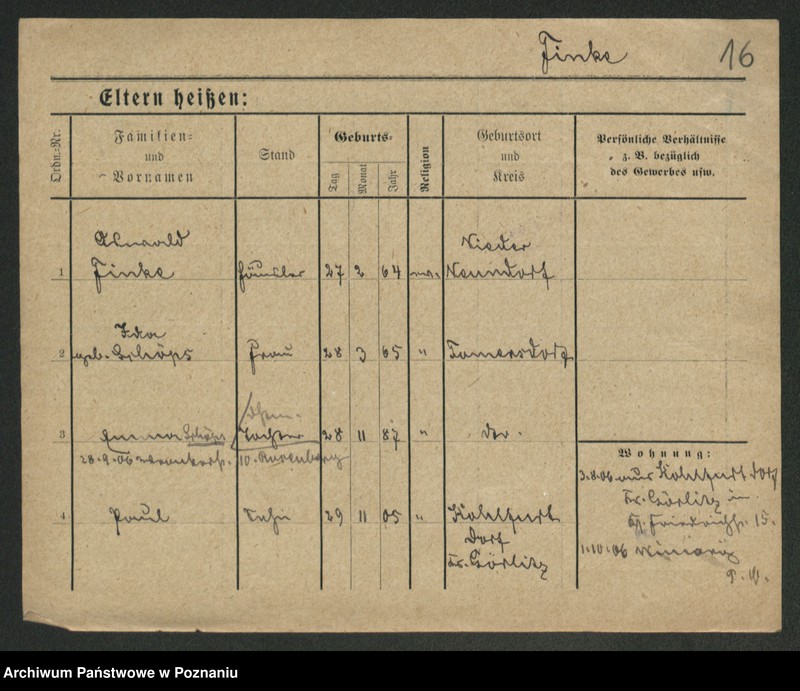 Finke 16
Eltern heißen:
Ordn.=Nr.
Familien=
und
Vornamen
Stand
Geburts=
Tag
Monat
Jahr
Religion
Geburtsort
und
Kreis
Persönliche Verhältnisse
z. B. bezüglich
des Gewerbes usw.
Nieder
1 Finke Häusler 27 2 64 Neundorf
Ida
2 geb. Schöps Frau 28 3 65 " Tomersdorf
3 Emma Schöps Tochter 28 11 87 "
28.9.06
Wohnung:
3.8.06 aus Kohlfurt Dorf
Kr. Görlitz in
Friedrichstr. 15.
4 Paul Sohn 29 11 05 " Kohlfurt
Dorf
Kr. Görlitz
1.10.06
Archiwum Państwowe w Poznaniu